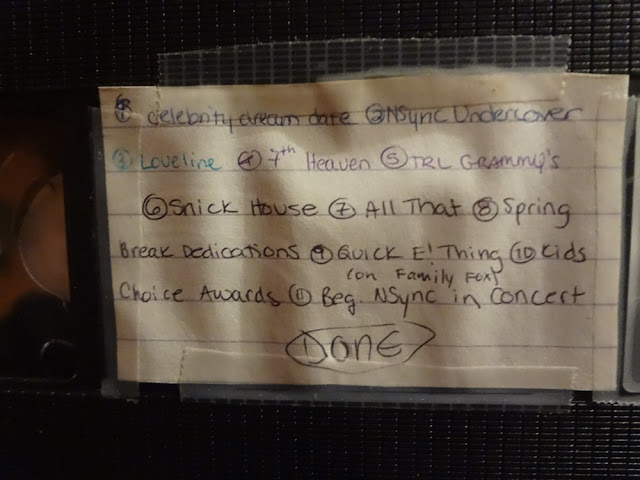 ① celebrity dream date ② NSync Undercover
③ Loveline ④ 7th Heaven ⑤ TRL GRAMMY's
⑥ Snick House ⑦ All That ⑧ Spring
Break Dedications ⑨ Quick E! Thing ⑩ Kids
(on Family Fox)
Choice Awards ⑪ Beg. NSync in Concert
DONE